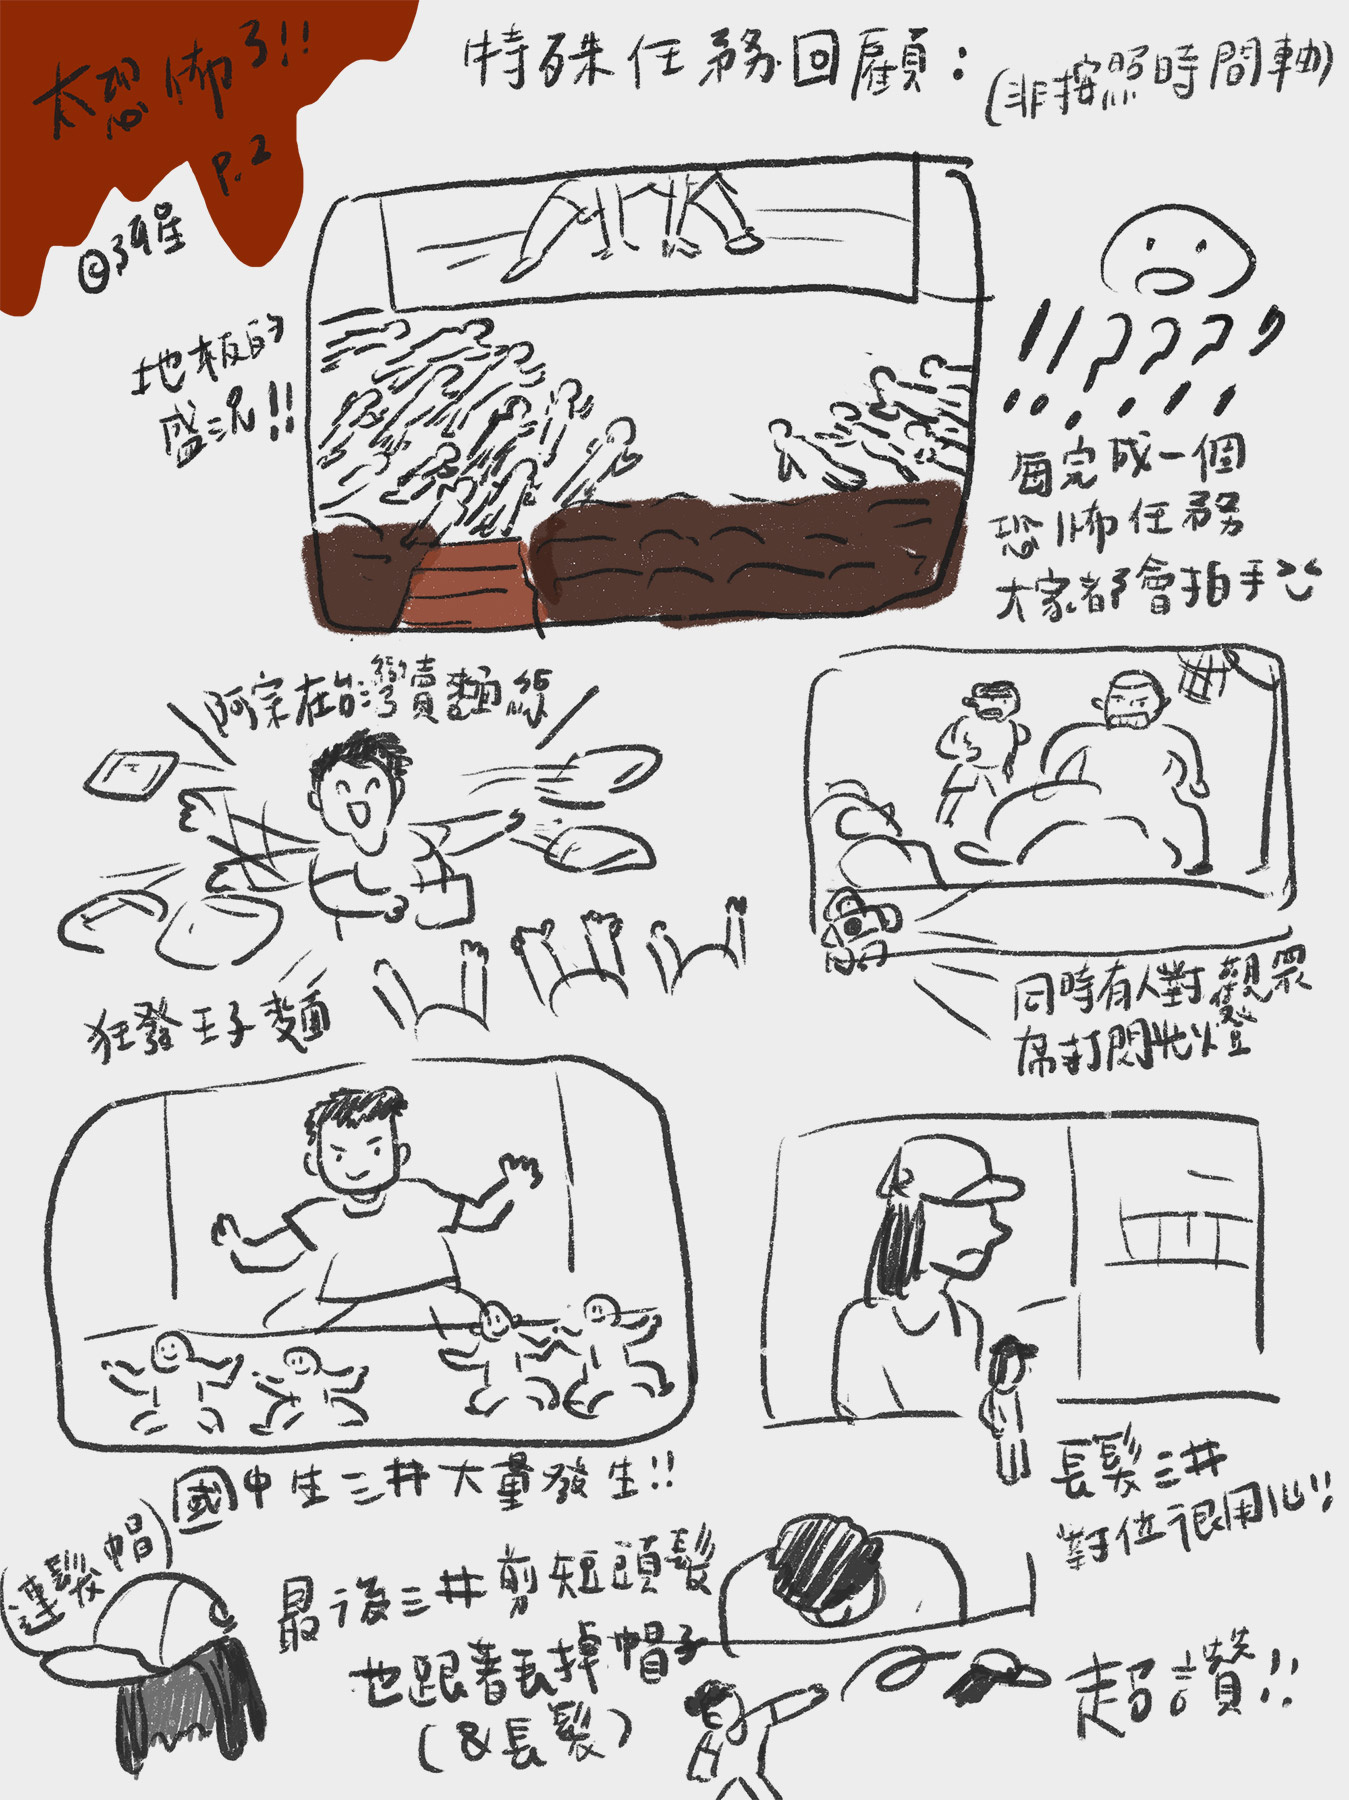 太恐怖了!!
P.2
特殊任務回顧：
(非按照時間軸)
地板的
盛況!!
!!????,
每完成一個
恐怖任務
大家都會拍手
阿宗在台灣賣麵線
狂發王子麵
同時有人對觀眾
席打閃光燈
國中生三井大量發生!!
長髮三井
對位很用心!!
連髮帽
最後三井剪短頭髮
也跟著丟掉帽子
(&長髮)
超讚!!